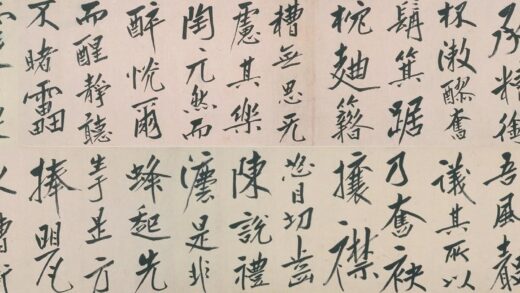 承糟銜
杯漱醪奮
髯箕踞
枕麯籍
糟無思无
慮其樂
陶〻兀然而
醉恍爾
而醒靜聽
不睹雷
吾風聲
議其所以
乃奮袂
攘襟
怒目切齒
陳說禮
灋是非
蜂起先
生是方
捧甖